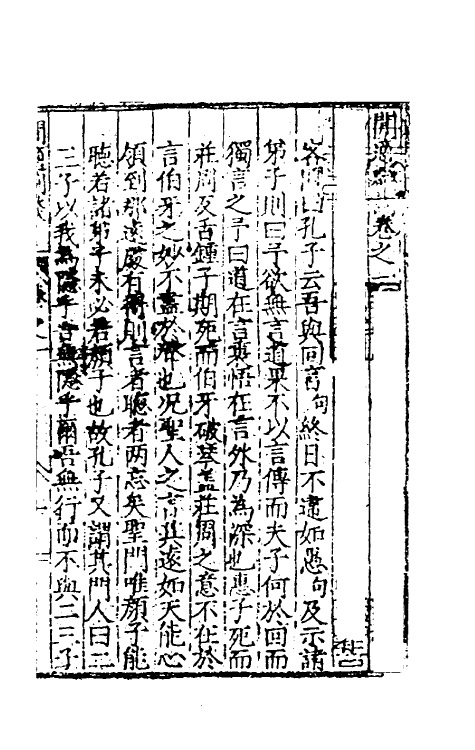 閒適劇 卷之
客問曰孔子云吾與回言句終日不違如愚句及示諸
弟子則曰予欲無言道果不以言傳而夫子何於回而
獨言之乎曰道在言悟在言外乃為深也惠子死而
莊周反舌鍾子期死而伯牙破琴蓋莊周之意不在於
言伯牙之妙不盡於琴也况聖人之言其遠如天能心
領到那遠處有得則言者聽者两忘矣聖門唯顔子能
聽若諸弟子未必若顔子也故孔子又謂其門人曰二
三子以我為隱乎吾無隱乎爾吾無行而不與二三子